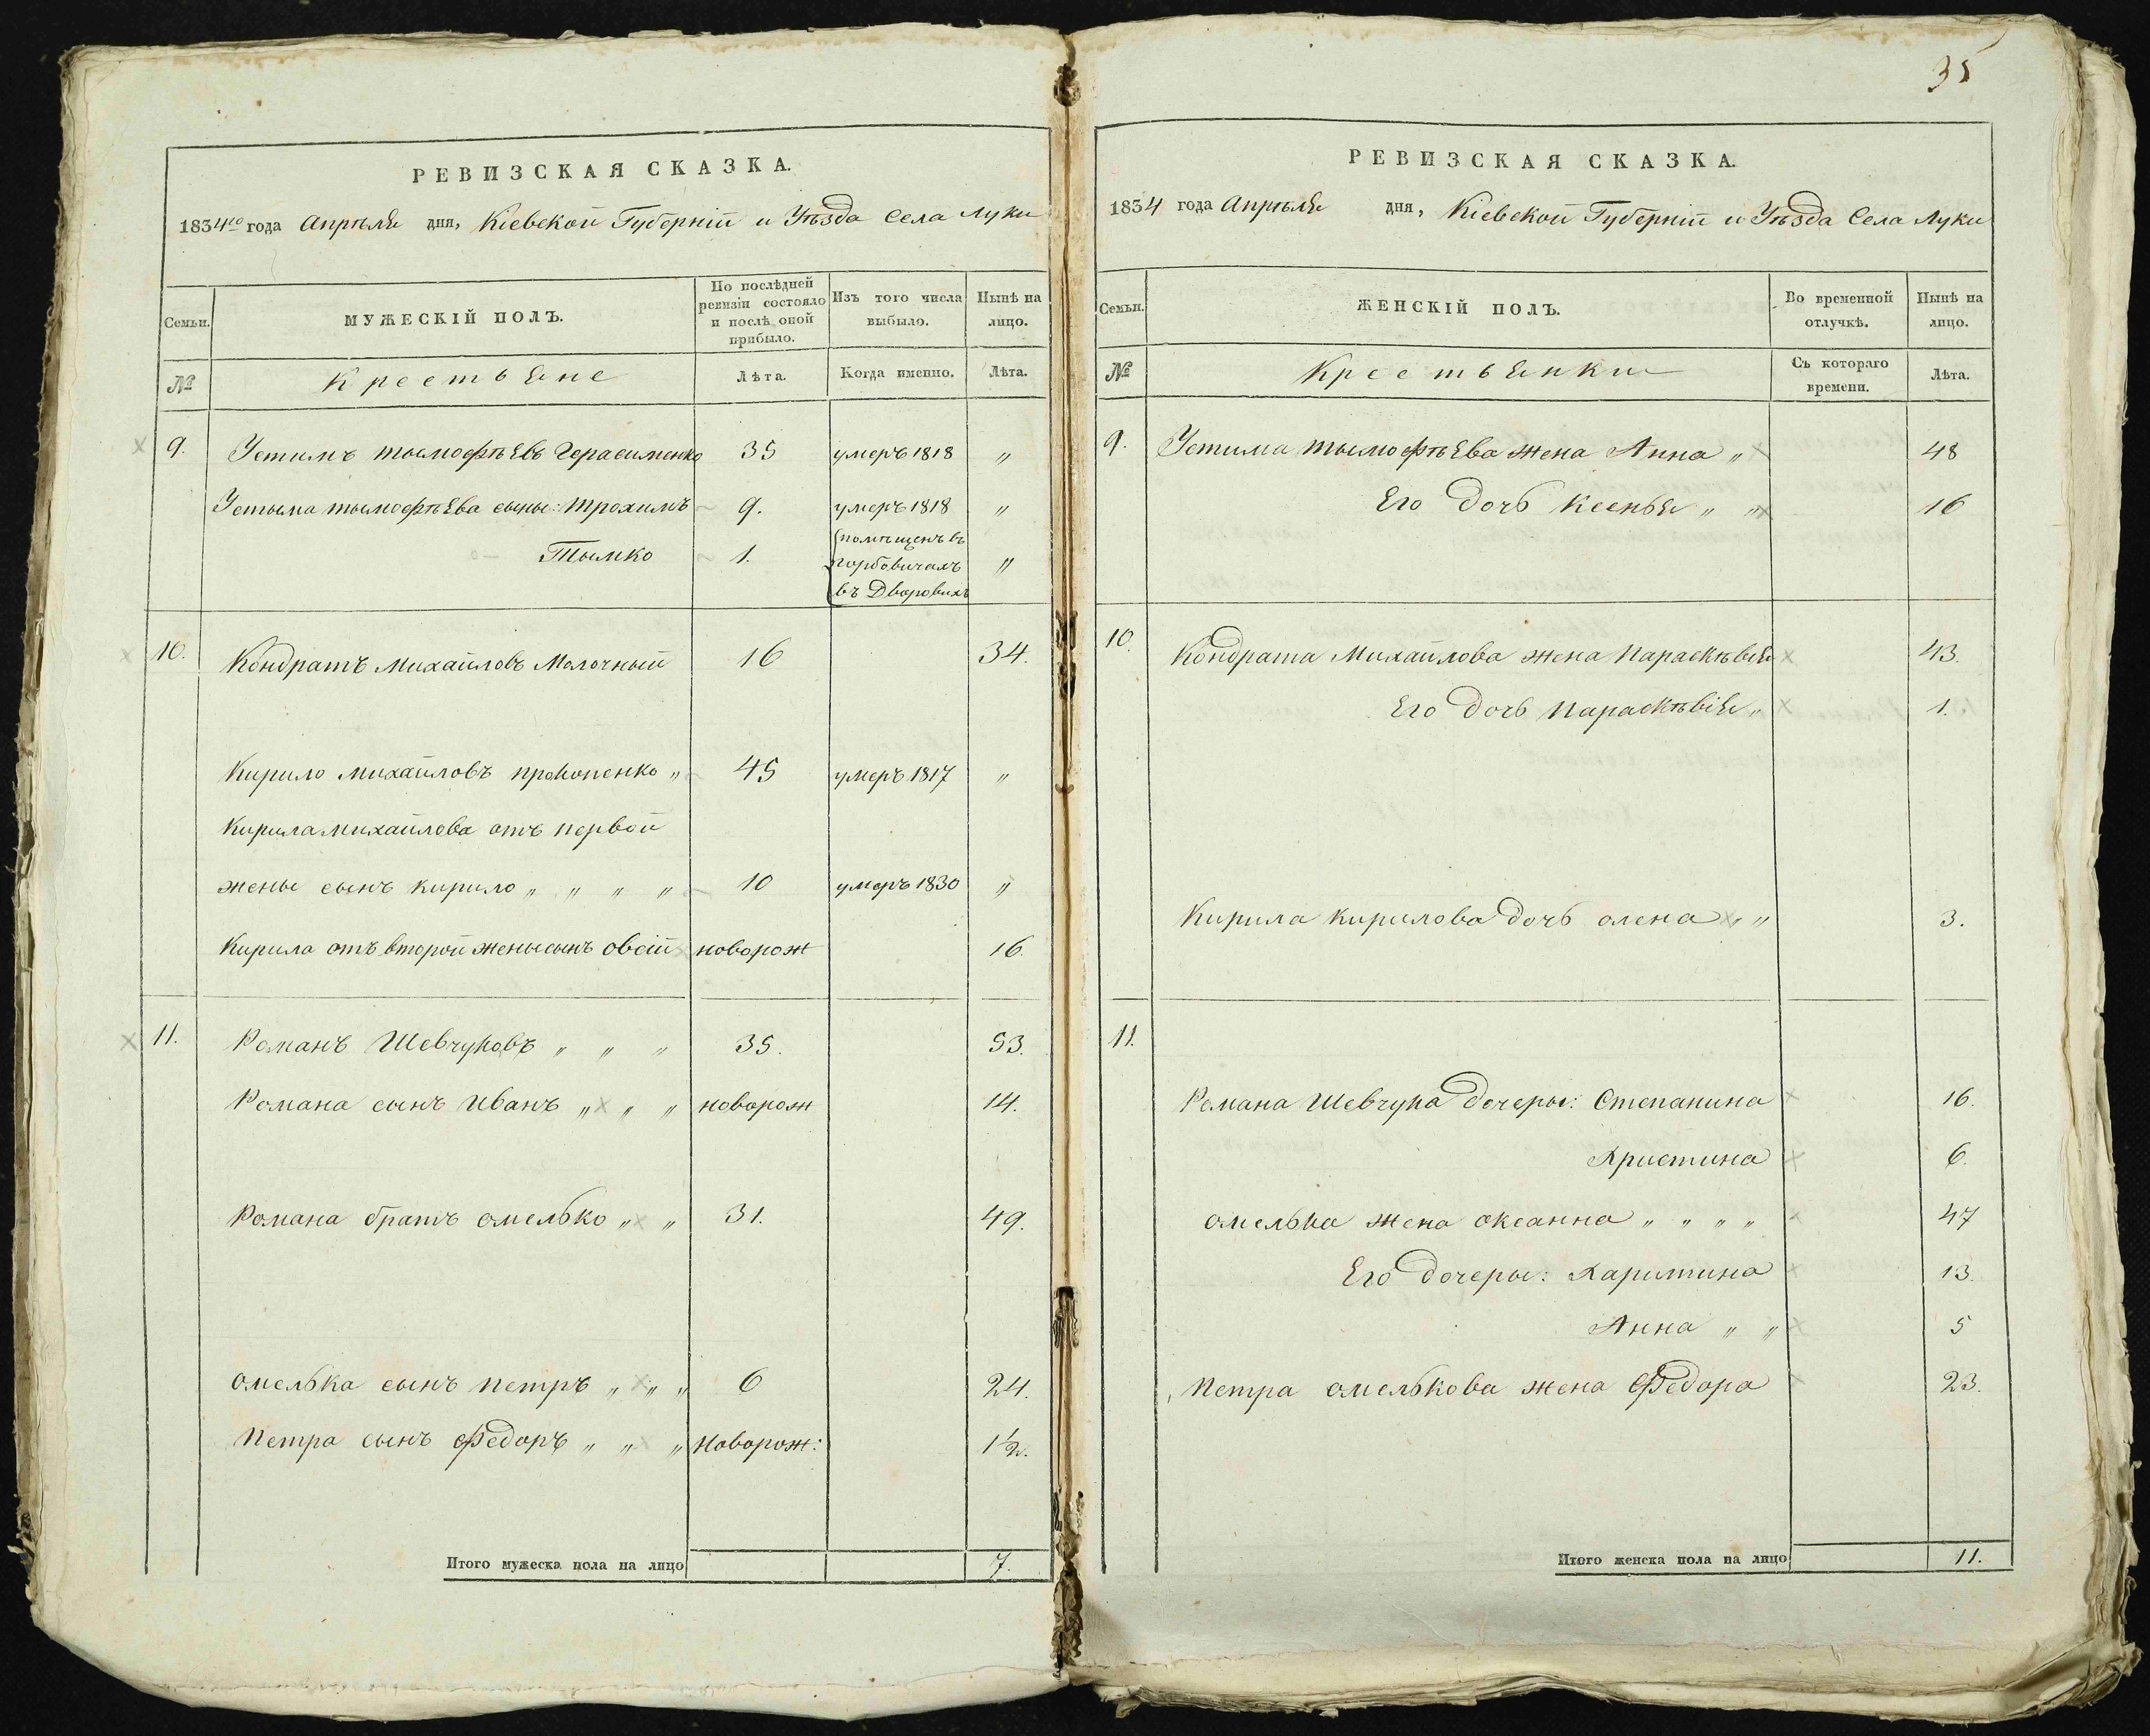 35
РЕВИЗСКАЯ СКАЗКА.
1834го года Апрѣля дня, Кіевской Губерніи и Уѣзда Села Луки
Семьи.
МУЖЕСКІЙ ПОЛЪ.
По послѣдней ревизіи состояло и послѣ оной прибыло.
Изъ того числа выбыло.
Нынѣ на лицо.
№
Крестьяне
Лѣта.
Когда именно.
Лѣта.
9. Устимъ тымофѣевъ Герасименко 35 умеръ 1818 "
Устыма тымофѣева сыны: Трохимъ 9. умеръ 1818 "
Тымко 1. помѣщенъ въ "
Горбовичахъ
въ Дворовихъ
10. Кондратъ Михайловъ Молочный 16 34.
Кирило Михайловъ прокопенко " 45 умеръ 1817 "
Кирила михайлова отъ первой
жены сынъ кирило " " " " 10 умеръ 1830 "
Кирила отъ второй жены сынъ овсій новорож 16.
11. Романъ Шевчуковъ " " " 35. 53.
Романа сынъ Иванъ " " " новорож 14.
Романа братъ омелько " " 31. 49.
омелька сынъ петръ " " " 6 24.
Петра сынъ Федоръ " " " Новорож: 1½.
Итого мужеска пола на лицо 7.
РЕВИЗСКАЯ СКАЗКА.
1834 года Апрѣля дня, Кіевской Губерніи и Уѣзда Села Луки
Семьи.
ЖЕНСКІЙ ПОЛЪ.
Во временной отлучкѣ.
Нынѣ на лицо.
№
Крестьянки
Съ котораго времени.
Лѣта.
9. Устима тымофѣева жена Анна " 48
Его дочь Ксенья " " 16
10. Кондрата Михайлова жена Параскѣвія 43.
Его дочь параскѣвія " 1.
Кирила кирилова дочь олена " " 3.
11.
Романа Шевчука дочеры: Степанина 16.
Христина 6.
омелька жена оксанна " " " " 47
Его дочеры: Харитина 13.
Анна " " 5
Петра омелькова жена Федора 23.
Итого женска пола на лицо 11.